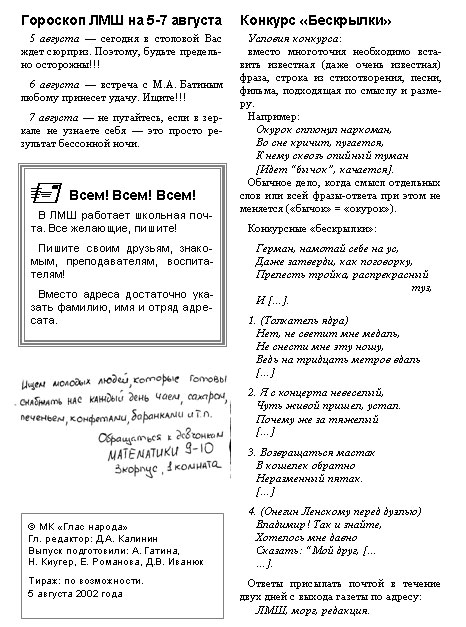 Гороскоп ЛМШ на 5-7 августа
5 августа — сегодня в столовой Вас
ждет сюрприз. Поэтому, будьте предель-
но осторожны!!!
6 августа — встреча с М.А. Батиным
любому принесет удачу. Ищите!!!
7 августа — не пугайтесь, если в зер-
кале не узнаете себя — это просто ре-
зультат бессонной ночи.
Всем! Всем! Всем!
В ЛМШ работает школьная поч-
та. Все желающие, пишите!
Пишите своим друзьям, знако-
мым, преподавателям, воспита-
телям!
Вместо адреса достаточно ука-
зать фамилию, имя и отряд адре-
сата.
Ищем молодых людей, которые готовы
снабжать нас каждый день чаем, сахаром,
печеньем, конфетами, баранками и т.п.
Обращаться к девчонкам
МАТЕМАТИКИ 9-10
3 корпус, 1 комната
© МК «Глас народа»
Гл. редактор: Д.А. Калинин
Выпуск подготовили: А. Гатина,
Н. Киугер, Е. Романова, Д.В. Иванюк
Тираж: по возможности.
5 августа 2002 года
Конкурс «Бескрылки»
Условия конкурса:
вместо многоточия необходимо вста-
вить известная (даже очень известная)
фраза, строка из стихотворения, песни,
фильма, подходящая по смыслу и разме-
ру.
Например:
Окурок сплюнул наркоман,
Во сне кричит, пугается,
К нему сквозь опийный туман
[Идет “бычок”, качается].
Обычное дело, когда смысл отдельных
слов или всей фразы-ответа при этом не
меняется («бычок» = «окурок»).
Конкурсные «бескрылки»:
Герман, намотай себе на ус,
Даже затверди, как поговорку,
Прелесть тройка, распрекрасный
туз,
И […].
1. (Толкатель ядра)
Нет, не светит мне медаль,
Не снести мне эту ношу,
Ведь на тридцать метров вдаль
[…]
2. Я с концерта невеселый,
Чуть живой пришел, устал.
Почему же за тяжелый
[…]
3. Возвращаться мастак
В кошелек обратно
Неразменный пятак.
[…]
4. (Онегин Ленскому перед дуэлью)
Владимир! Так и знайте,
Хотелось мне давно
Сказать: “Мой друг, […
…].
Ответы присылать почтой в течение
двух дней с выхода газеты по адресу:
ЛМШ, морг, редакция.